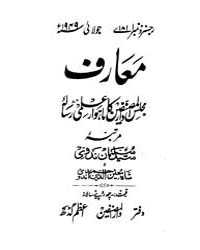 رجسٹرڈ نمبر ۱۸۱ اے جولائی ۱۹۴۹ء
معارف
مجلس دارالمصنفین کا ماہوار علمی رسالہ
مرتبہ
سید سلیمان ندوی
شاہ معین الدین احمد ندوی
قیمت: چھ روپیہ سالانہ
دفتر دارالمصنفین اعظم گڈھ